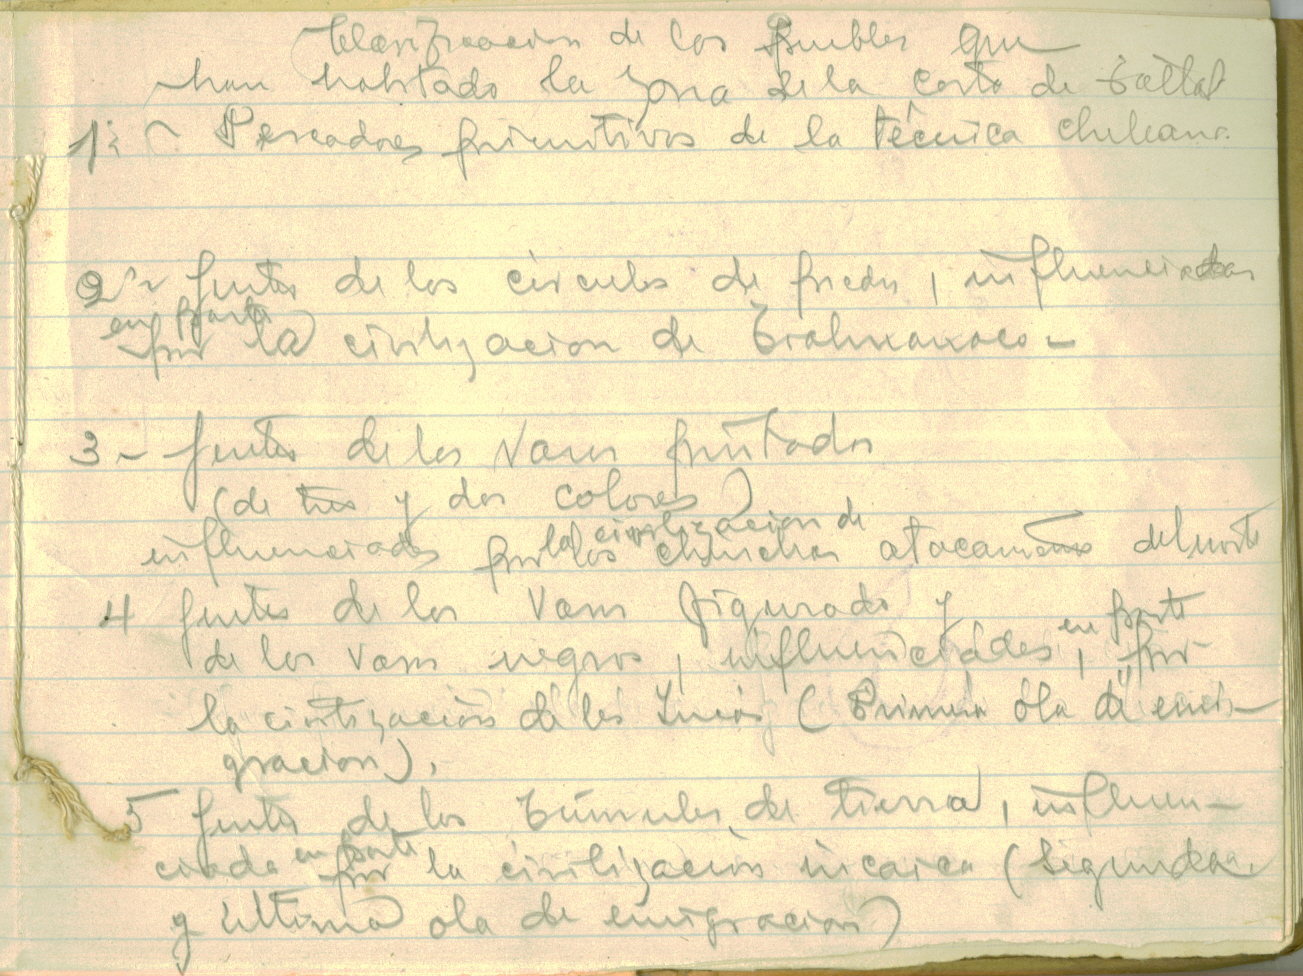 Clasificacion de los pueblos que
han habitado la zona de la costa de Taltal
1º- Pescadores primitivos de la técnica chileana.
2º- Gentes de los circulos de piedra, influenciados
en parte
por la civilizacion de Tiahuanaco-
3- Gentes de los Vasos pintados
(de tres y dos colores)
la civilizacion de
influenciados por los chinchas atacameños del norte
4 Gentes de los Vasos figurados y
en parte
de los vasos negros, influenciados, por
la civilización de los Incas (Primera ola de emi-
gracion).
5 Gentes de los Túmulos de tierra, influen-
en parte
ciada por la civilización incaica (Segunda
y última ola de emigracion)